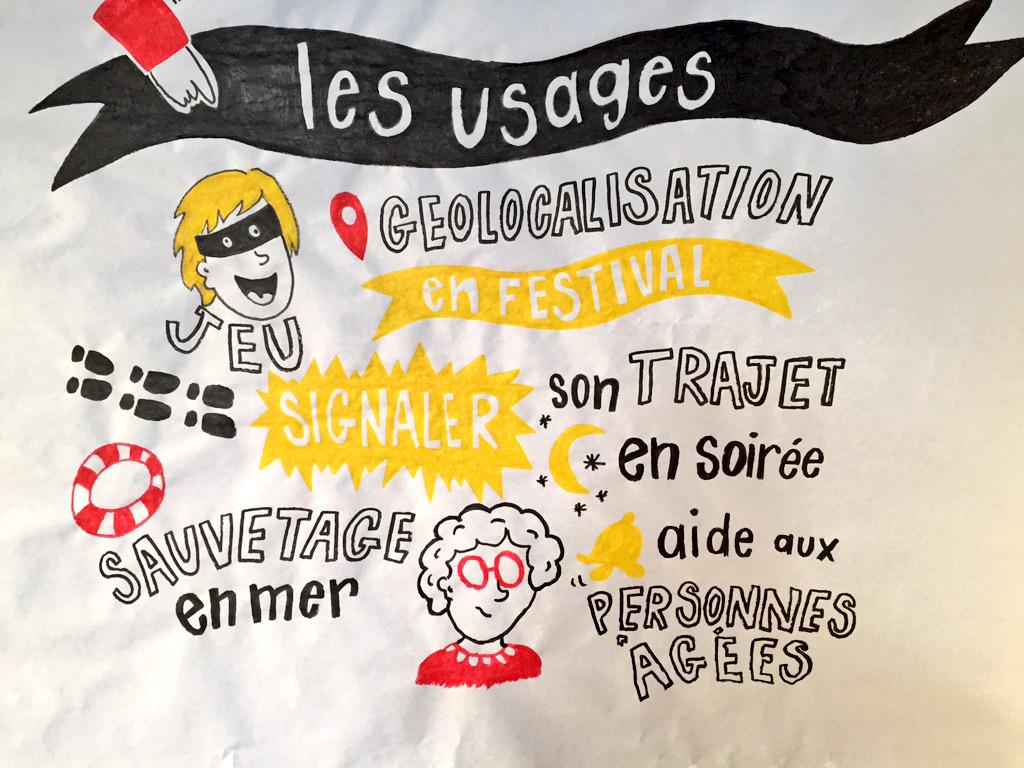 les usages
GEOLOCALISATION
en FESTIVAL
JEU
SIGNALER
son TRAJET
en soirée
SAUVETAGE
en mer
aide aux
PERSONNES
AGÉES